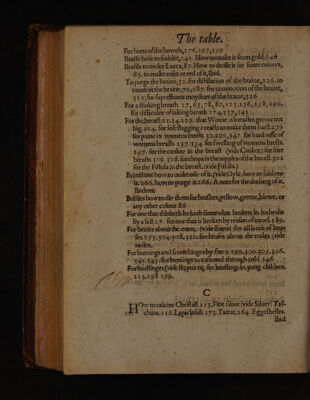 The table.
For hurts of the bowels, 176, 297, 299
Brasse how to sodder, 241. How to make it seem gold. 246
Brasile to make Lacca, 87. How to dresse it for fower colours,
85. to make roset or red of it, ibid.
To purge the braine, 32. for distillation of the braine, 226. to
comfort the braine, 72, 287. for commotion of the braine,
312. for superfluous moysture of the braine, 326
For a stinking breath 27, 65, 78, 80, 123, 236, 258, 290.
for difficultie of taking breath 274, 337, 345
For the breast. 23. 34. 229. that Womens breastes growe not
big. 204. for sore flagging breasts to make them hard. 279
for paine in womens breasts 33, 299, 347. for hardnesse of
womens breasts 337. 334. for swelling of womens breasts.
297. for the canker in the breast (vide Canker) for sore
breasts 309 326. for chops in the nipples of the breast 302
for the Fistula in the breast. (vide Fistula.)
Brimstone how to make oyle of it, (vide Oyle, how to sublime
it. 266. how to purge it. 266. A note for the chusing of it.
Ibidem.
Bristles how to die them for brushes, yellow, greene, blewe, or
any other colour. 86
For one that thinketh he hath somewhat broken in his bodie
by a fall 27. for one that is broken by reason of travel. 189.
For bruises about the eares, (vide Eares) for all kinds of bruises
275. 304. 308. 320. for bruises about the nailes, (vide
nailes.
For burnings and scorchings by fire 9. 299. 300. 305. 306.
341. 345. for burnings occasioned through cold 346
For burstings (vide Rupture) for burstings in yong children.
223. 298 299.
C
How to calcine Christall. 115. Fine silver (vide Silver) Talchum.
116. Lapis lasuli. 173. Tartar. 264 Eggeshelles.
Ibid